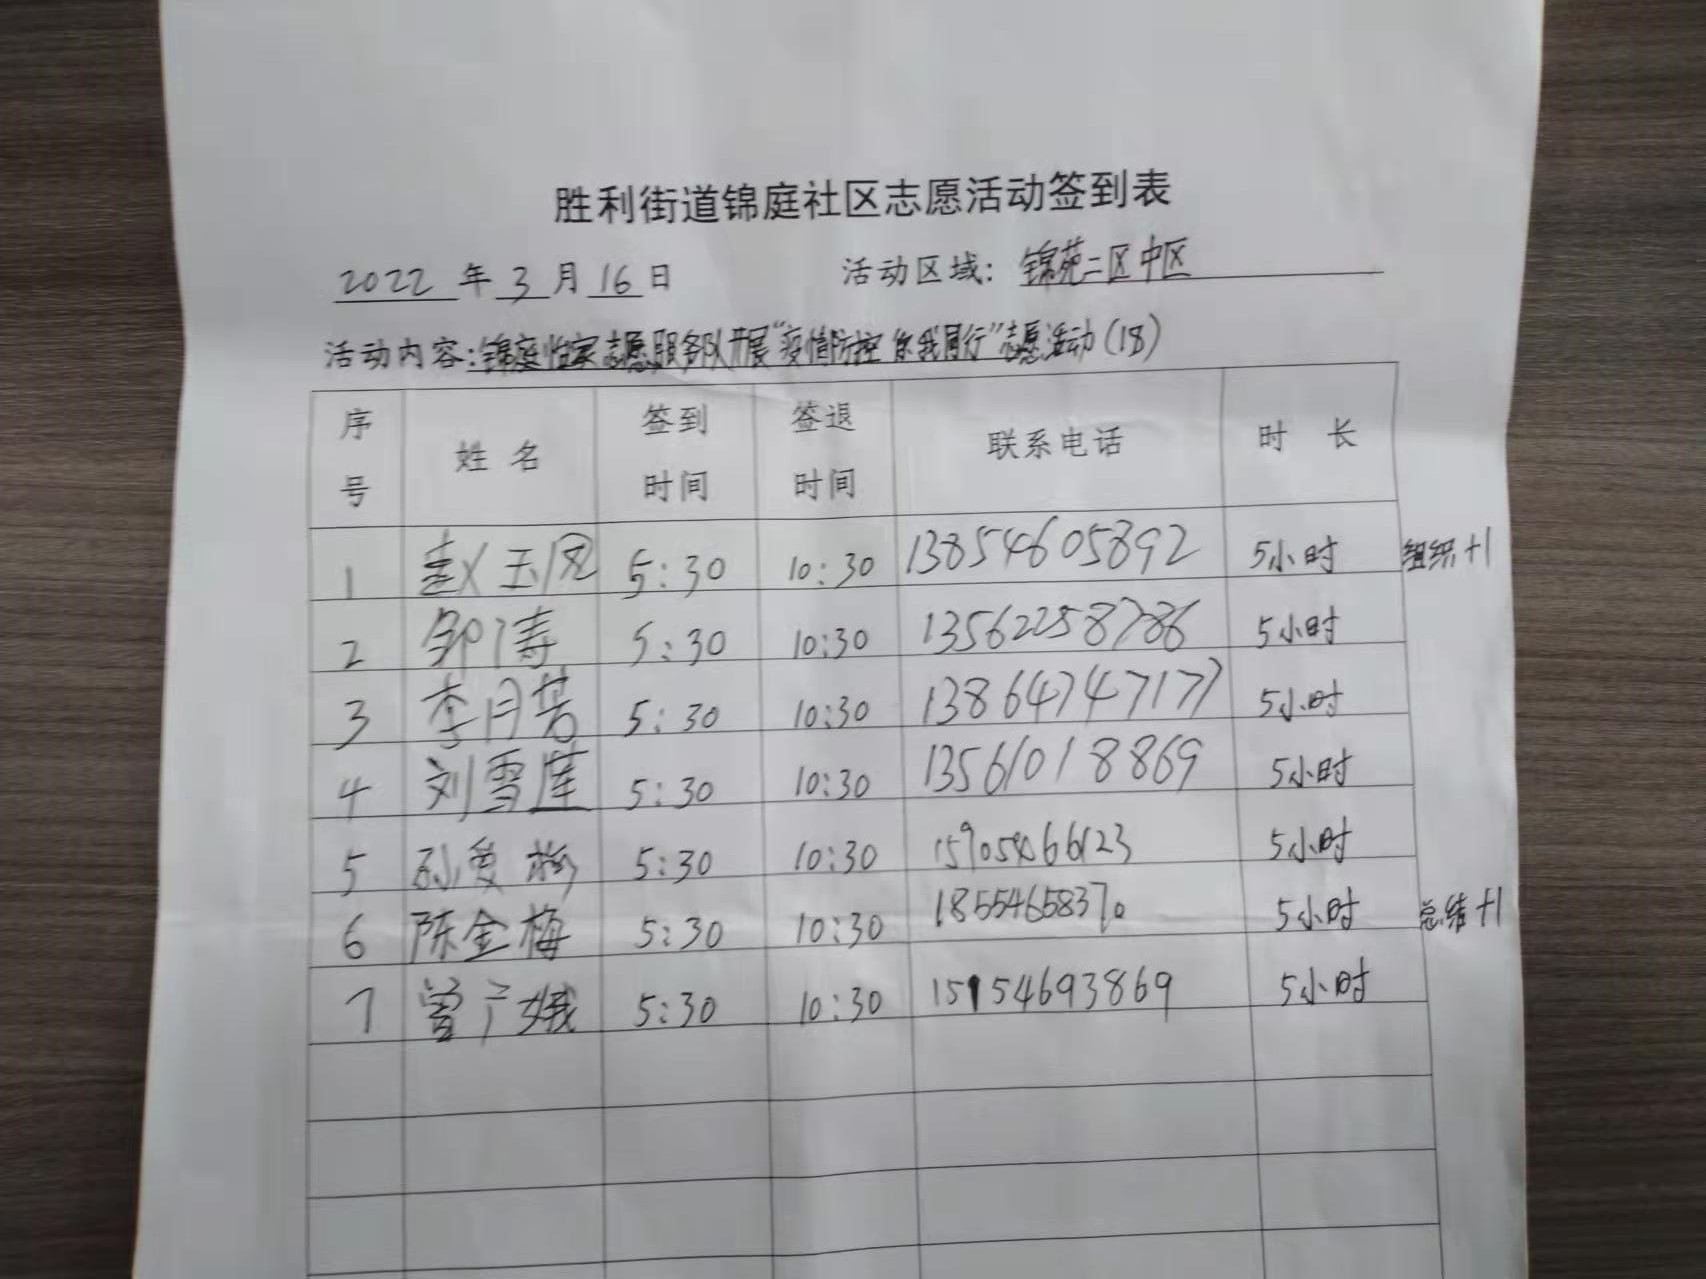 胜利街道锦庭社区志愿活动签到表
2022年3月16日 活动区域：锦苑二区中区
活动内容：锦庭怡家志愿服务队开展“疫情防控 你我同行”志愿活动(18)
序号 姓名 签到时间 签退时间 联系电话 时长
1 赵玉 5:30 10:30 13854605892 5小时 组织+1
2 邹涛 5:30 10:30 13562258786 5小时
3 李月芳 5:30 10:30 13864747177 5小时
4 刘雪莲 5:30 10:30 13561018869 5小时
5 孙爱梅 5:30 10:30 15905466123 5小时
6 陈金梅 5:30 10:30 18554658370 5小时 总结+1
7 曾广娥 5:30 10:30 15954693869 5小时